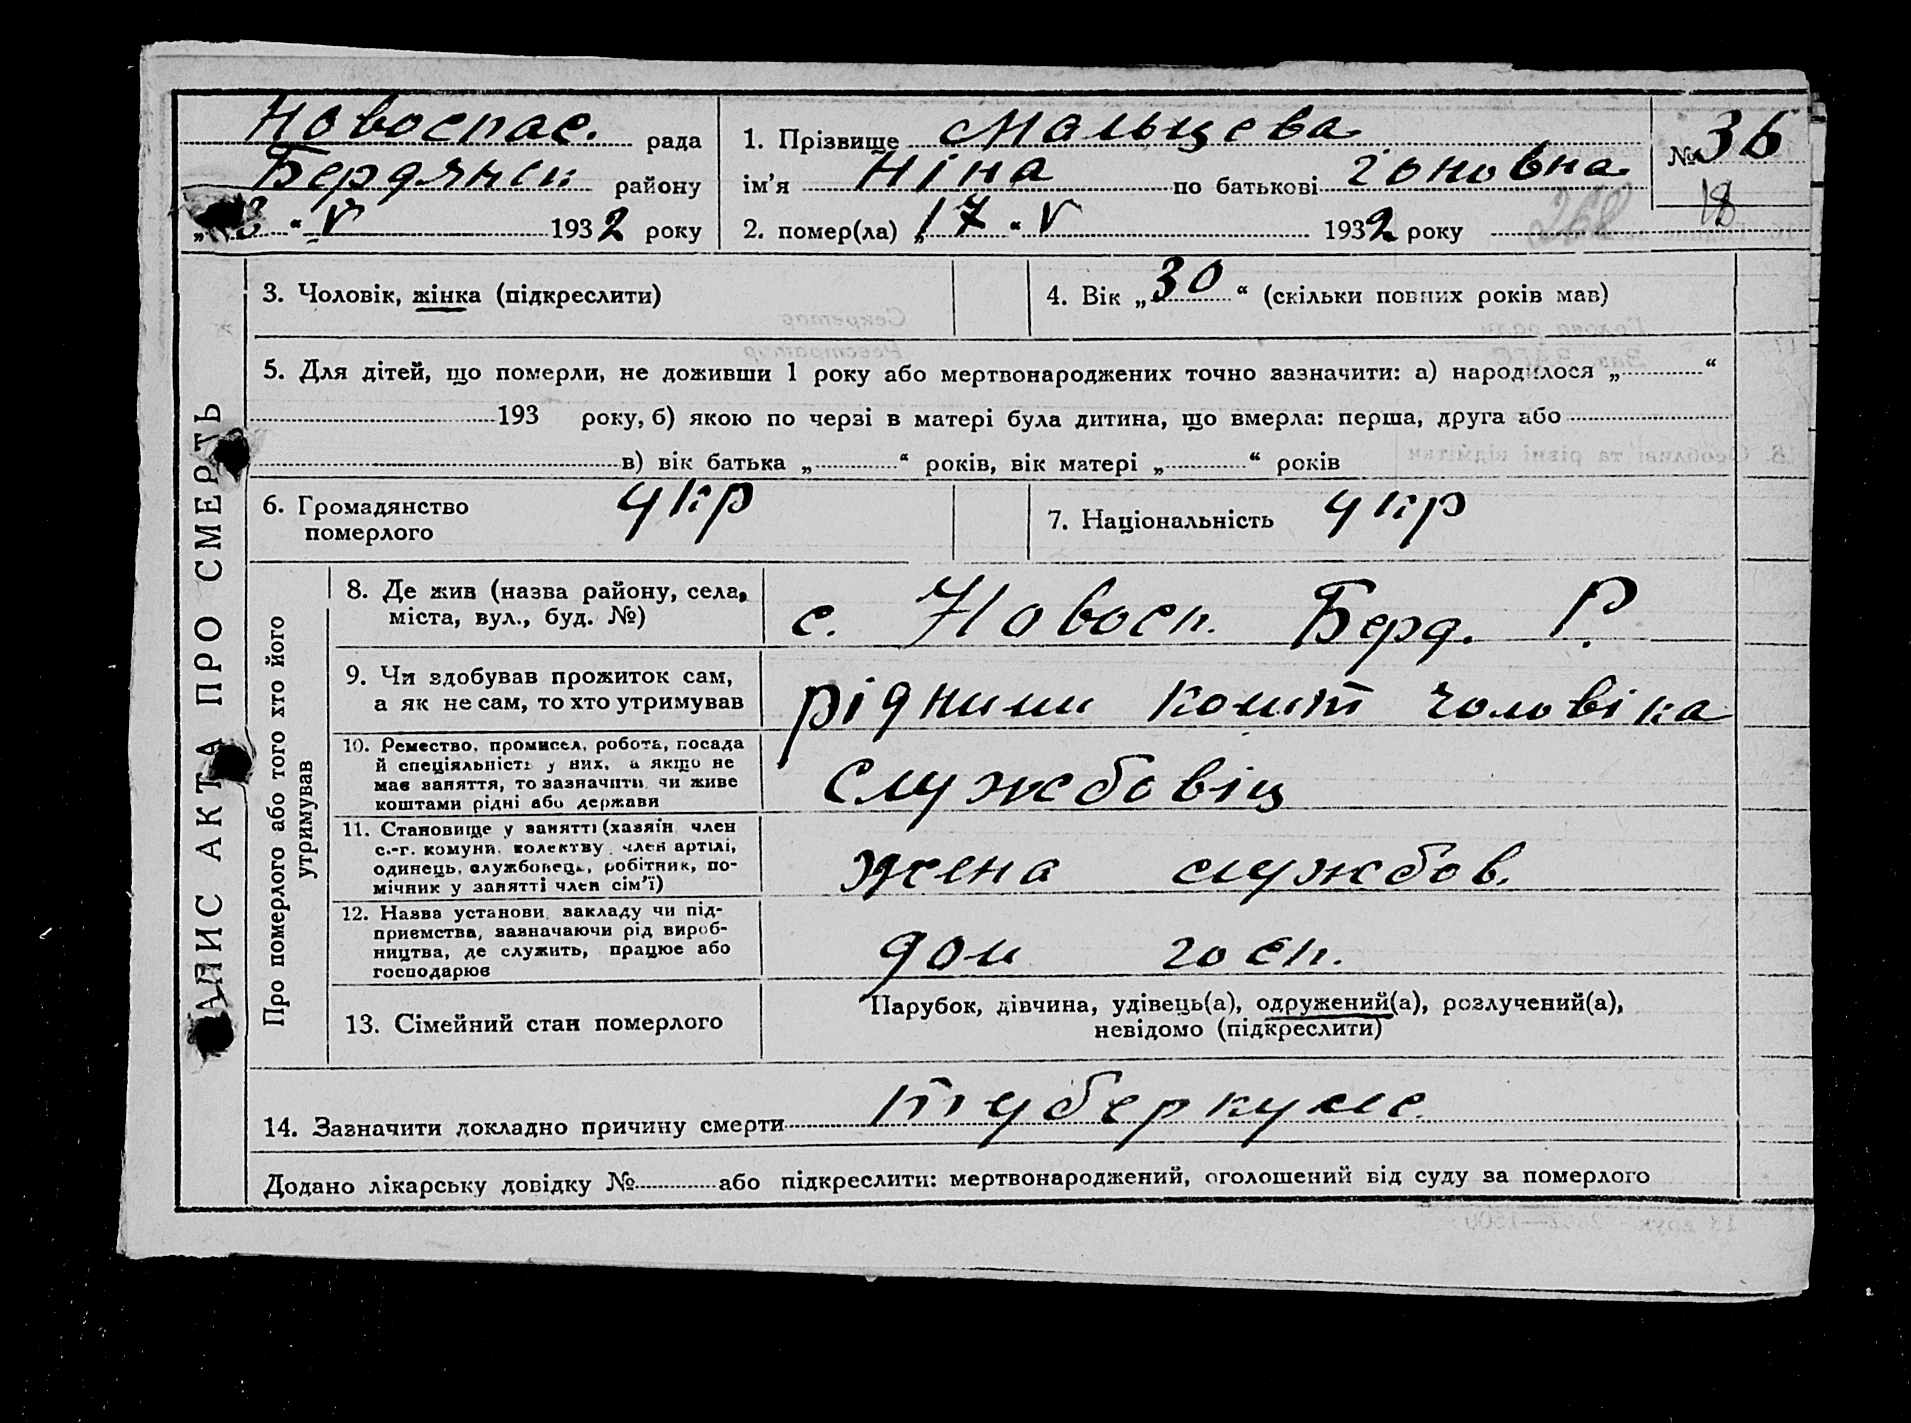 Новоспас. рада
Бердянськ району
„ 8 “ V 1932 року
1. Прізвище Мальцева
ім’я Ніна по батькові
2. помер(ла) „ 17 “ V 1932 року
№ 36
18
268
ЗАПИС АКТА ПРО СМЕРТЬ
3. Чоловік, жінка (підкреслити)
4. Вік „ 30 “ (скільки повних років мав)
5. Для дітей, що померли, не доживши 1 року або мертвонароджених точно зазначити: а) народилося „ “
193 року, б) якою по черзі в матері була дитина, що вмерла: перша, друга або
в) вік батька „ “ років, вік матері „ “ років
6. Громадянство
померлого
укр
7. Національність укр
Про померлого або того хто його
утримував
8. Де жив (назва району, села,
міста, вул., буд. №)
с. Новосп. Берд. Р.
9. Чи здобував прожиток сам,
а як не сам, то хто утримував
рідними кошт чоловіка
10. Ремество, промисел, робота, посада
й спеціяльність у них, а якщо не
мав заняття, то зазначити, чи живе
коштами рідні або держави
службовіц
11. Становище у занятті (хазяїн, член
с.-г. комуни, колективу, член артілі,
одинець, службовець, робітник, по-
мічник у занятті член сім’ї)
жена службов.
12. Назва установи, закладу чи під-
приємства, зазначаючи рід вироб-
ництва, де служить, працює або
господарює
дом госп.
13. Сімейний стан померлого
Парубок, дівчина, удівець(а), одружений(а), розлучений(а),
невідомо (підкреслити)
14. Зазначити докладно причину смерти туберкульс
Додано лікарську довідку № або підкреслити: мертвонароджений, оголошений від суду за померлого